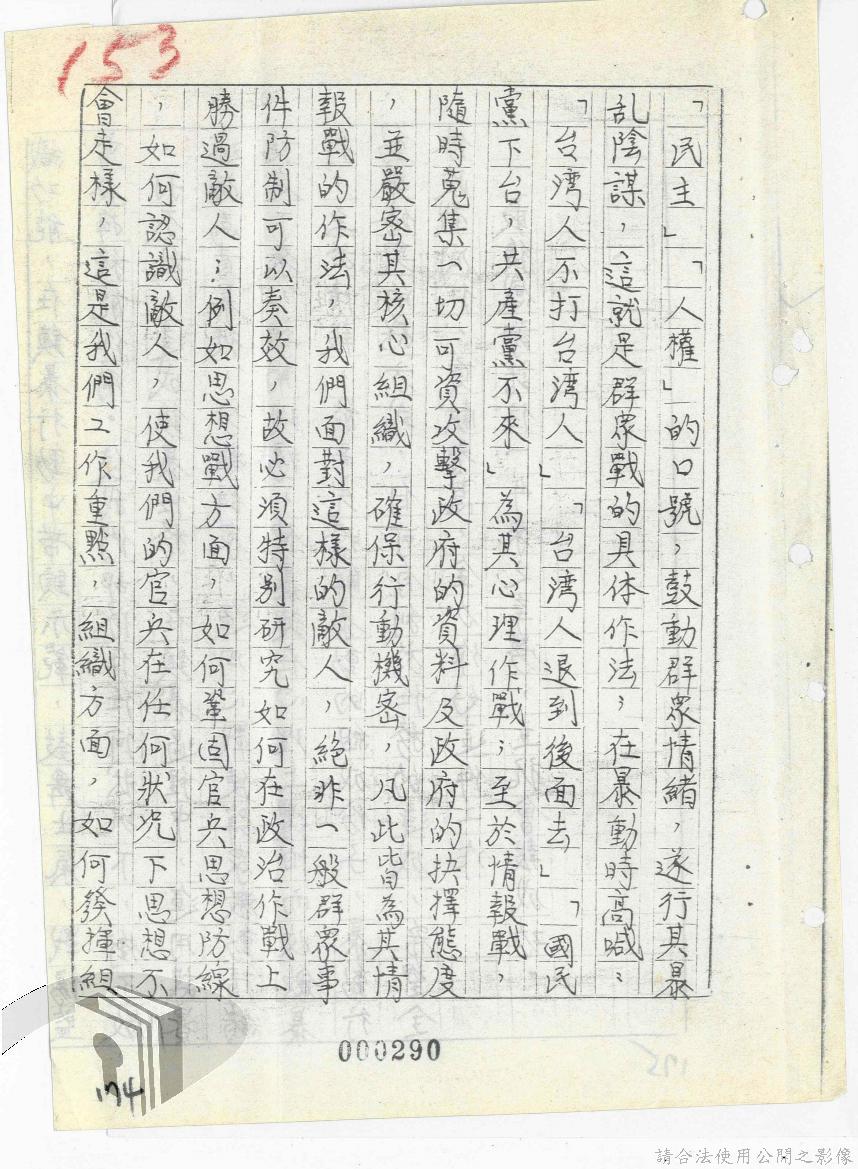 153
「民主」「人權」的口號，鼓動群眾情緒，遂行其暴
乱陰謀，這就是群眾戰的具体作法；在暴動時高喊：
「台湾人不打台湾人」「台湾人退到後面去」「國民
黨下台，共產黨不來」為其心理作戰；至於情報戰，
隨時蒐集一切可資攻擊政府的資料及政府的抉擇態度
，並嚴密其核心組織，確保行動機密，凡此皆為其情
報戰的作法，我們面對這樣的敵人，絕非一般群眾事
件防制可以奏效，故必須特別研究如何在政治作戰上
勝過敵人；例如思想戰方面，如何鞏固官兵思想防線
，如何認識敵人，使我們的官兵在任何狀況下思想不
會走樣，這是我們工作重點，組織方面，如何發揮組
000290
174
請合法使用公開之影像